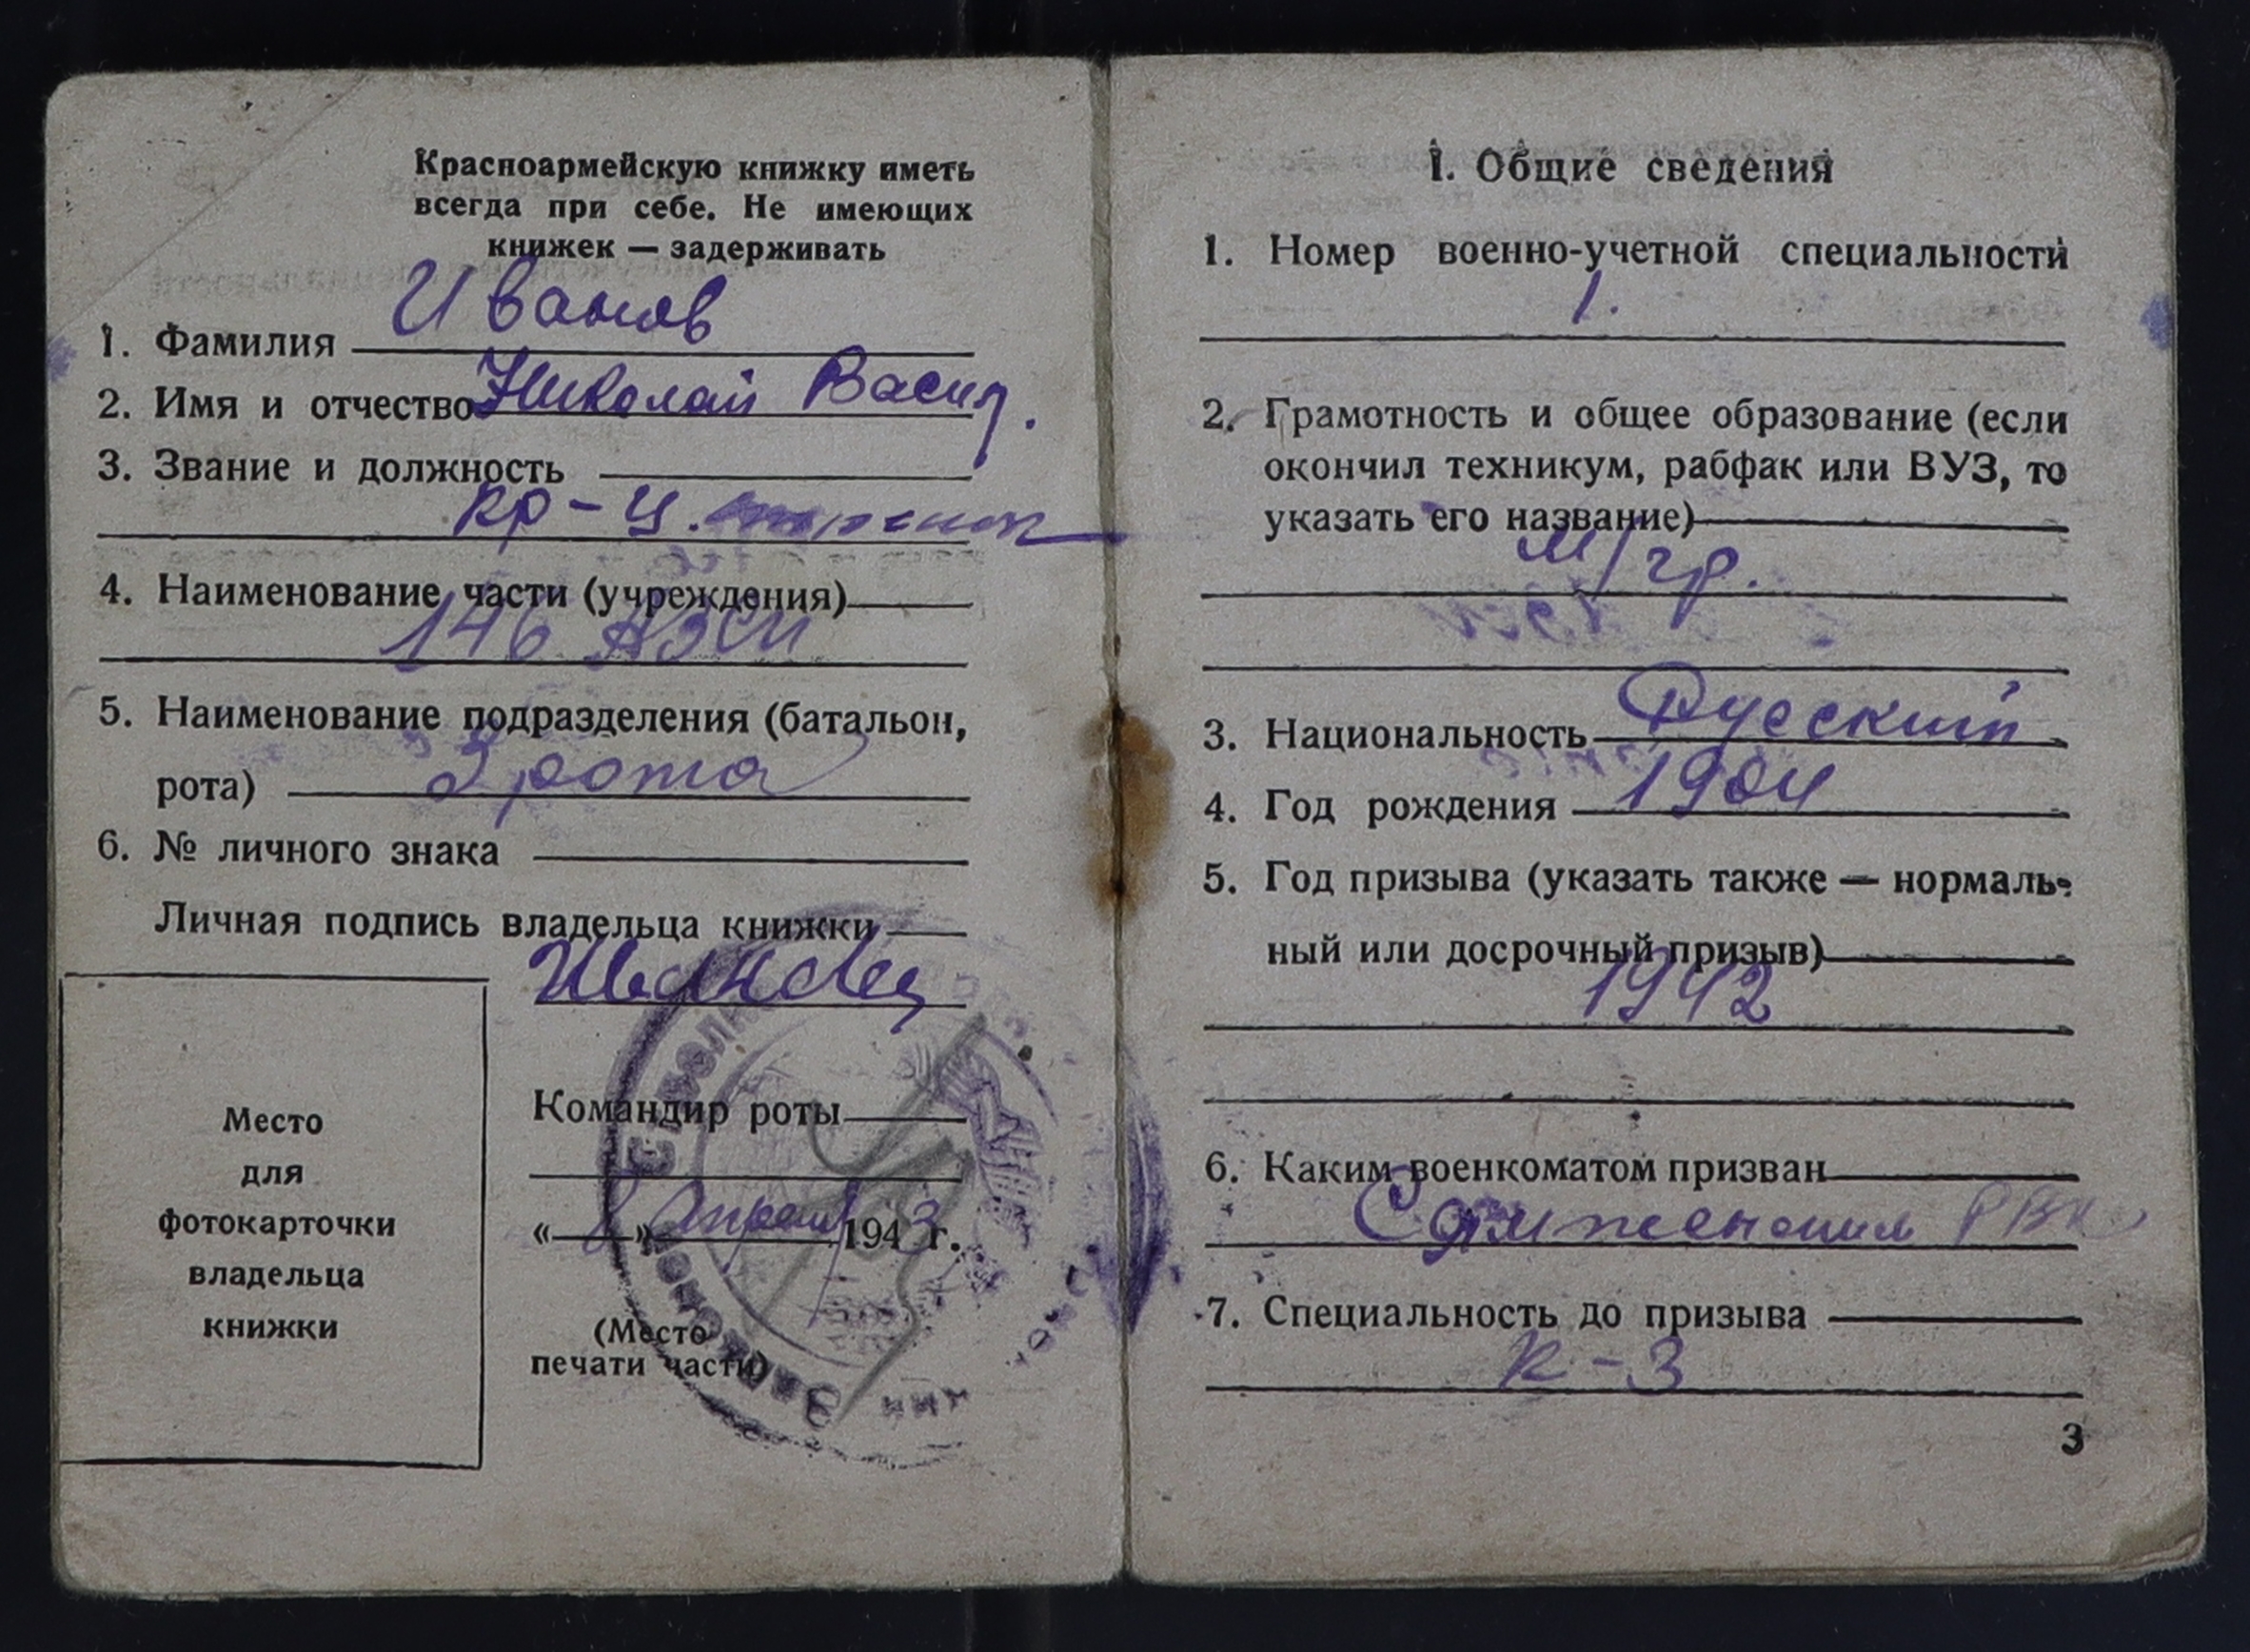 Красноармейскую книжку иметь
всегда при себе. Не имеющих
книжек — задерживать
1. Фамилия Иванов
2. Имя и отчество Николай Васил.
3. Звание и должность
кр-ц. стрелок
4. Наименование части (учреждения)
146 АЗСП
5. Наименование подразделения (батальон,
рота) 2 рота
6. № личного знака
Личная подпись владельца книжки
Командир роты
«8» апреля 1943 г.
(Место
печати части)
Место
для
фотокарточки
владельца
книжки
I. Общие сведения
1. Номер военно-учетной специальности
1.
2. Грамотность и общее образование (если
окончил техникум, рабфак или ВУЗ, то
указать его название)
м/гр.
3. Национальность Русский
4. Год рождения 1904
5. Год призыва (указать также — нормаль-
ный или досрочный призыв)
1942
6. Каким военкоматом призван
РВК
7. Специальность до призыва
к-з
3